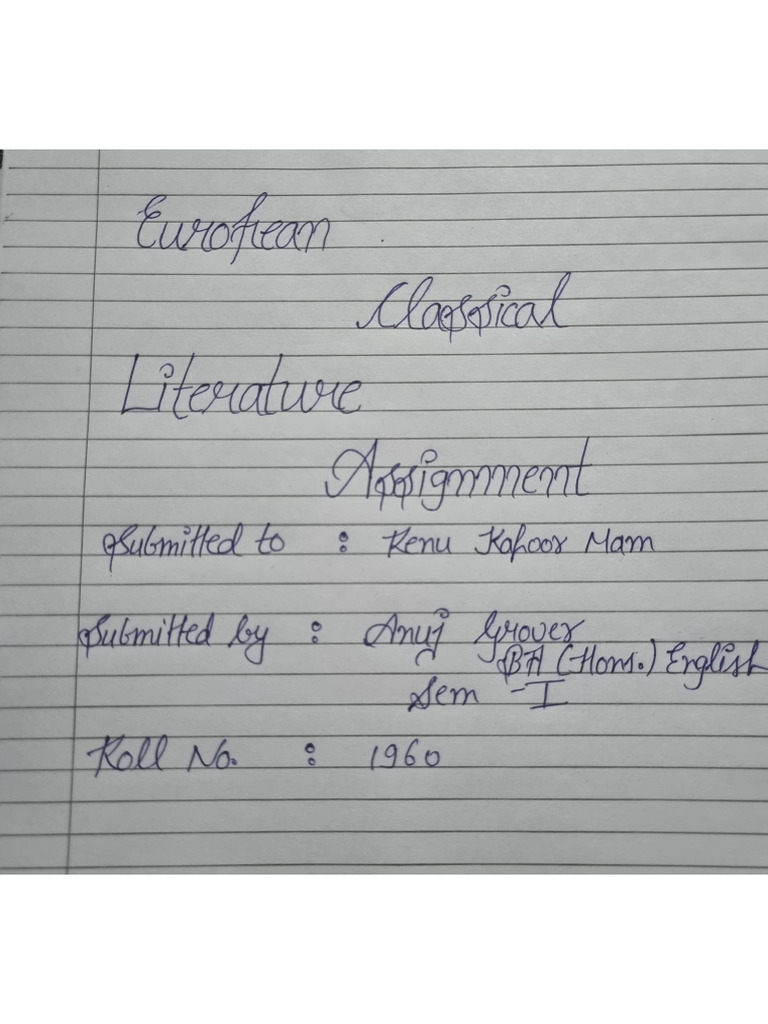 European
Classical
Literature
Assignment
Submitted to : Renu Kapoor Mam
Submitted by : Anuj Grover
BA (Hons.) English
Sem - I
Roll No. : 1960